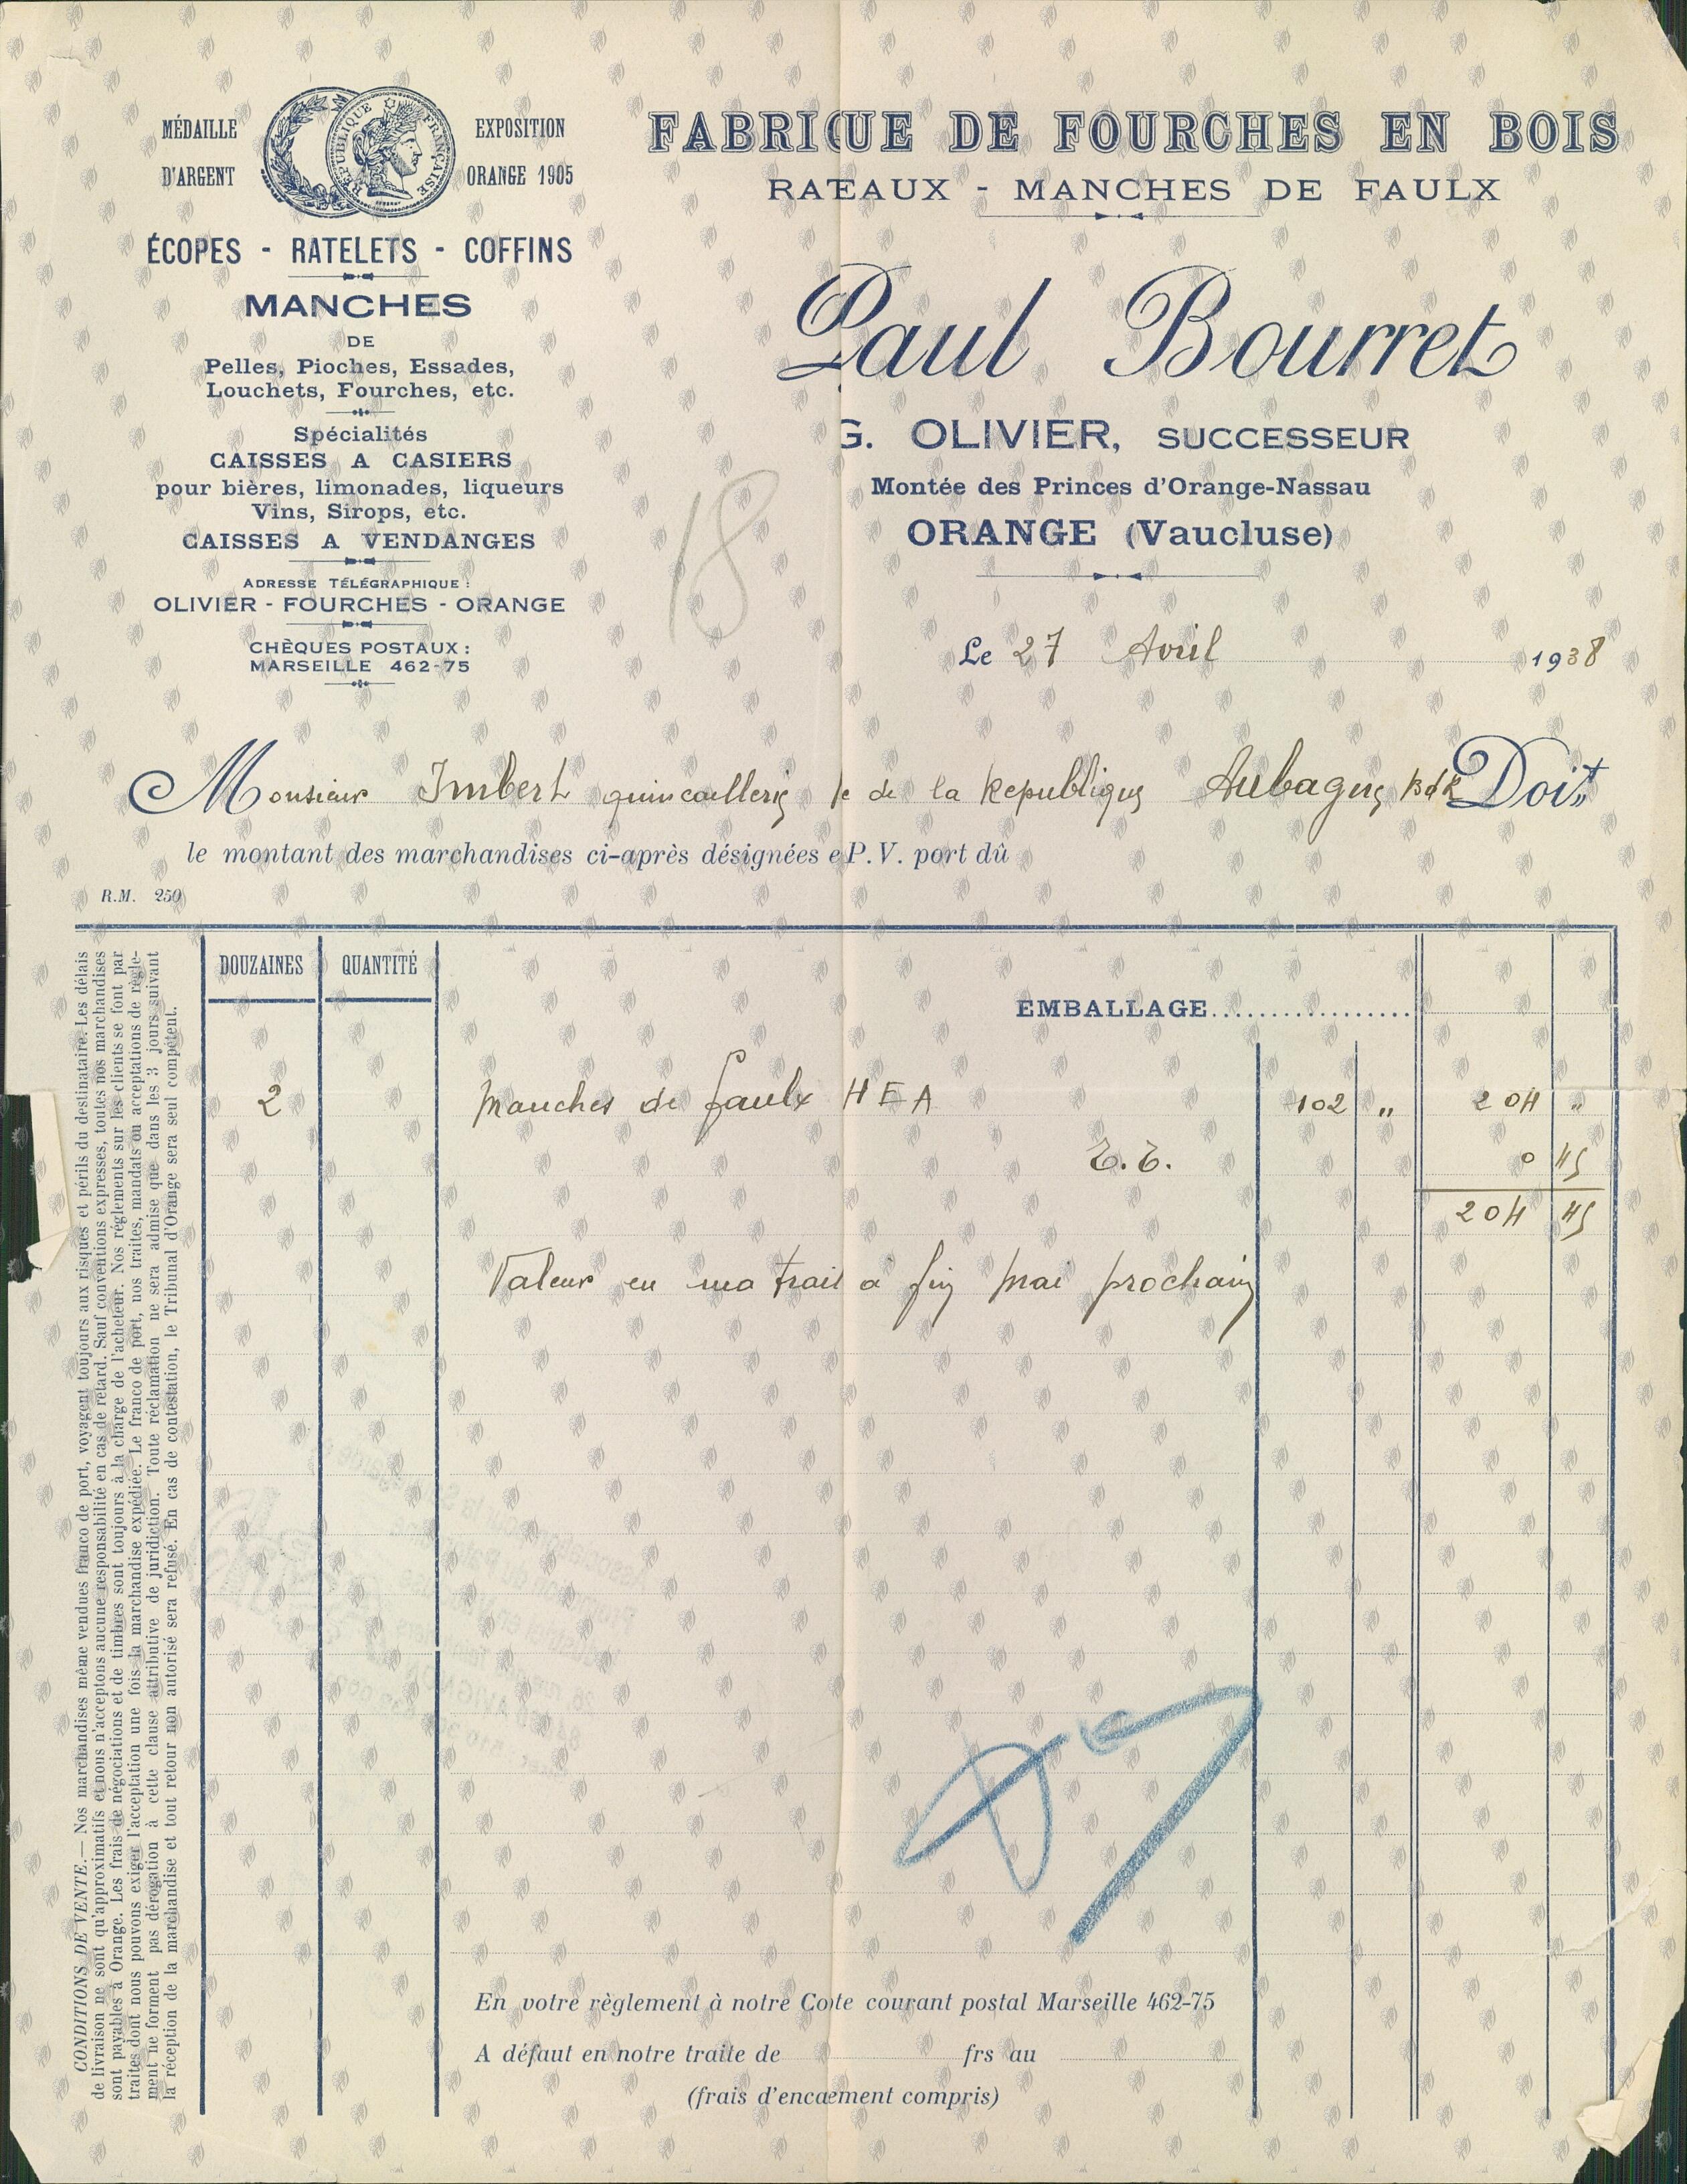 MÉDAILLE
D'ARGENT
RÉPUBLIQUE FRANÇAISE
EXPOSITION
ORANGE 1905
ÉCOPES - RATELETS - COFFINS
MANCHES
DE
Pelles, Pioches, Essades,
Louchets, Fourches, etc.
Spécialités
CAISSES A CASIERS
pour bières, limonades, liqueurs
Vins, Sirops, etc.
CAISSES A VENDANGES
ADRESSE TÉLÉGRAPHIQUE :
OLIVIER - FOURCHES - ORANGE
CHÈQUES POSTAUX :
MARSEILLE 462-75
FABRIQUE DE FOURCHES EN BOIS
RATEAUX - MANCHES DE FAULX
Paul Bourret
G. OLIVIER, SUCCESSEUR
Montée des Princes d'Orange-Nassau
ORANGE (Vaucluse)
18
Le 27 Avril 1938
Monsieur Imbert quincaillerie de la Republique Aubagne BdR Doit
le montant des marchandises ci-après désignées e P.V. port dû
R.M. 250
DOUZAINES QUANTITÉ
EMBALLAGE
2 Manches de faulx HEA 102 " 204 "
T.T. 0 45
204 45
Valeur en ma trait à fin mai prochain
En votre règlement à notre Cote courant postal Marseille 462-75
A défaut en notre traite de frs au
(frais d'encaement compris)
CONDITIONS DE VENTE.— Nos marchandises même vendues franco de port, voyagent toujours aux risques et périls du destinataire. Les délais
de livraison ne sont qu'approximatifs et nous n'acceptons aucune responsabilité en cas de retard. Sauf conventions expresses, toutes nos marchandises
sont payables à Orange. Les frais de négociations et de timbres sont toujours à la charge de l'acheteur. Nos règlements sur les clients se font par
traites dont nous pouvons exiger l'acceptation une fois la marchandise expédiée. Le franco de port, nos traites, mandats ou acceptations de règle-
ment ne forment pas dérogation à cette clause attributive de juridiction. Toute réclamation ne sera admise que dans les 3 jours suivant
la réception de la marchandise et tout retour non autorisé sera refusé. En cas de contestation, le Tribunal d'Orange sera seul compétent.